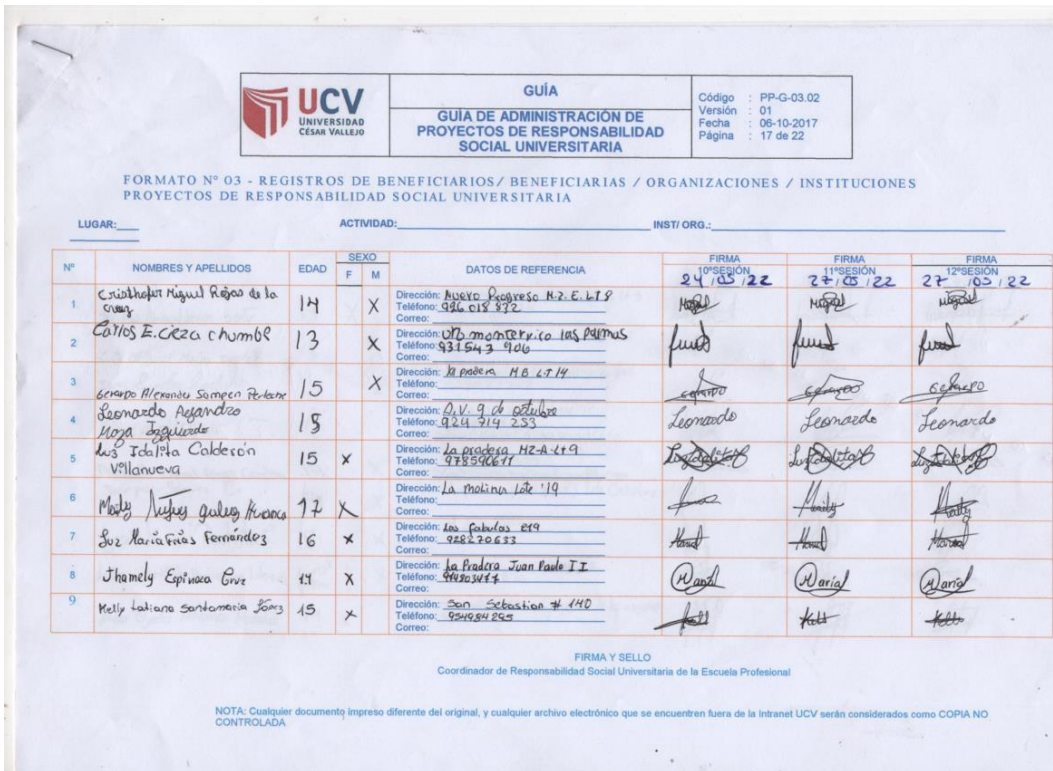 UCV
UNIVERSIDAD
CÉSAR VALLEJO
GUÍA
GUÍA DE ADMINISTRACIÓN DE
PROYECTOS DE RESPONSABILIDAD
SOCIAL UNIVERSITARIA
Código : PP-G-03.02
Versión : 01
Fecha : 06-10-2017
Página : 17 de 22
FORMATO N° 03 - REGISTROS DE BENEFICIARIOS/ BENEFICIARIAS / ORGANIZACIONES / INSTITUCIONES
PROYECTOS DE RESPONSABILIDAD SOCIAL UNIVERSITARIA
LUGAR: ACTIVIDAD: INST/ ORG.:
N° NOMBRES Y APELLIDOS EDAD SEXO F M DATOS DE REFERENCIA FIRMA 10°SESIÓN FIRMA 11°SESIÓN FIRMA 12°SESIÓN
24 /05 /22 27 /05 /22 27 /05 /22
1 Cristhofer Miguel Rojas de la
cruz 14 X
Dirección: Nuevo Progreso
Teléfono: 996 018 832
Correo:
2 Carlos E. cieza chumbe 13 X
Dirección: monterrico las palmas
Teléfono: 931543 906
Correo:
3 Gerardo Alexander Sampen 15 X
Dirección: la pradera MB LT 14
Teléfono:
Correo:
Gerardo Gerardo Gerardo
4 Leonardo
Moza Izquierdo
Dirección: A.V. 9 de octubre
Teléfono: 924 714 253
Correo:
Leonardo Leonardo Leonardo
5 Luz Idalita Calderón
Villanueva 15 x
Dirección: La pradera MZ-A-Lt 9
Teléfono: 978590611
Correo:
6 17 X
Dirección: La molina Lote 19
Teléfono:
Correo:
7 Luz María Frías Fernández 16 x
Dirección: Las fabulas
Teléfono: 928270633
Correo:
8 Jhamely Espinoza Cruz X
Dirección: La Pradera Juan Paulo II
Teléfono:
Correo:
9 Kelly Santamaria 15 x
Dirección: San Sebastian # 140
Teléfono: 954984295
Correo:
FIRMA Y SELLO
Coordinador de Responsabilidad Social Universitaria de la Escuela Profesional
NOTA: Cualquier documento impreso diferente del original, y cualquier archivo electrónico que se encuentren fuera de la Intranet UCV serán considerados como COPIA NO
CONTROLADA